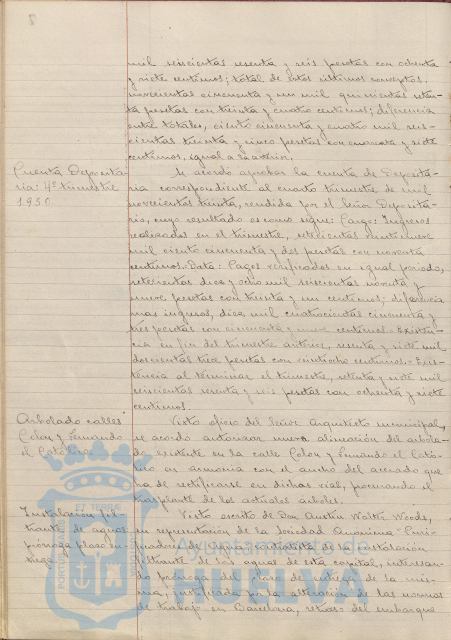 8
mil seiscientas sesenta y seis pesetas con ochenta
y siete centimos; total de estos últimos conceptos,
novecientas cincuenta y un mil quinientas
pesetas con treinta y cuatro centimos; diferencia
entre totales, ciento cincuenta y cuatro mil seis-
cientas treinta y cinco pesetas con cuarenta y siete
centimos, igual a la anterior.
Cuenta Deposita-
ria: 4º trimestre
1930.
Se acordo aprobar la cuenta de Deposita-
ria correspondiente al cuarto trimestre de mil
novecientos treinta, rendida por el Señor Deposita-
rio, cuyo resultado es como sigue: Cargo: Ingresos
realizados en el trimestre, setecientas veintinueve
mil ciento cincuenta y dos pesetas con noventa
centimos. Data: Pagos verificados en igual periodo,
setecientas diez y ocho mil seiscientas noventa y
nueve pesetas con treinta y un centimos; diferencia
mas ingresos, diez mil cuatrocientas cincuenta y
tres pesetas con cincuenta y nueve centimos. Existen-
cia en fin del trimestre anterior, sesenta y siete mil
doscientas trece pesetas con veintiocho centimos. Exis-
tencia al terminar el trimestre, setenta y siete mil
seiscientas sesenta y seis pesetas con ochenta y siete
centimos.
Arbolado calles
Colon y Fernando
el Católico.
Visto oficio del Señor Arquitecto municipal,
se acordo autorizar nueva alineación del arbola-
do existente en la calle Colon y Fernando el Cató-
lico en armonia con el ancho del acerado que
ha de rectificarse en dichas vias, procurando el
trasplante de los actuales árboles.
Instalación fil-
trante de aguas
prórroga plazo en-
trega.
Visto escrito de Don Austin Walter Woods,
en representación de la Sociedad Anonima Puri-
ficadora de Agua, contratista de la instalación
filtrante de las aguas de esta capital, interesan-
do prórroga del plazo de entrega de la mis-
ma, justificada por la alteración de las normas
de trabajo en Barcelona, retraso del embarque
Ayuntamiento de
HUELVA